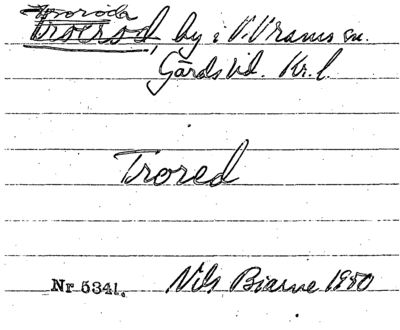 Troröda
Troröd, by i V. Vrams sn.
Gärds hd. Kr. l.
Trored
Nr 5341. Nils Bjarne 1930